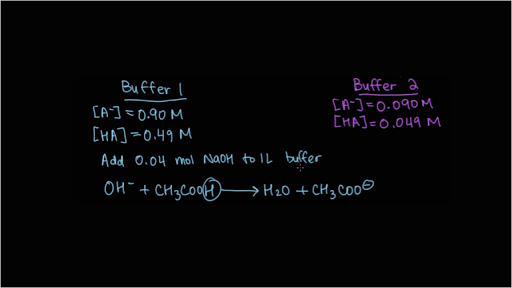 Buffer 1
[A⁻] = 0.90 M
[HA] = 0.49 M
Buffer 2
[A⁻] = 0.090 M
[HA] = 0.049 M
Add 0.04 mol NaOH to 1L buffer
OH⁻ + CH₃COOH → H₂O + CH₃COO⊖